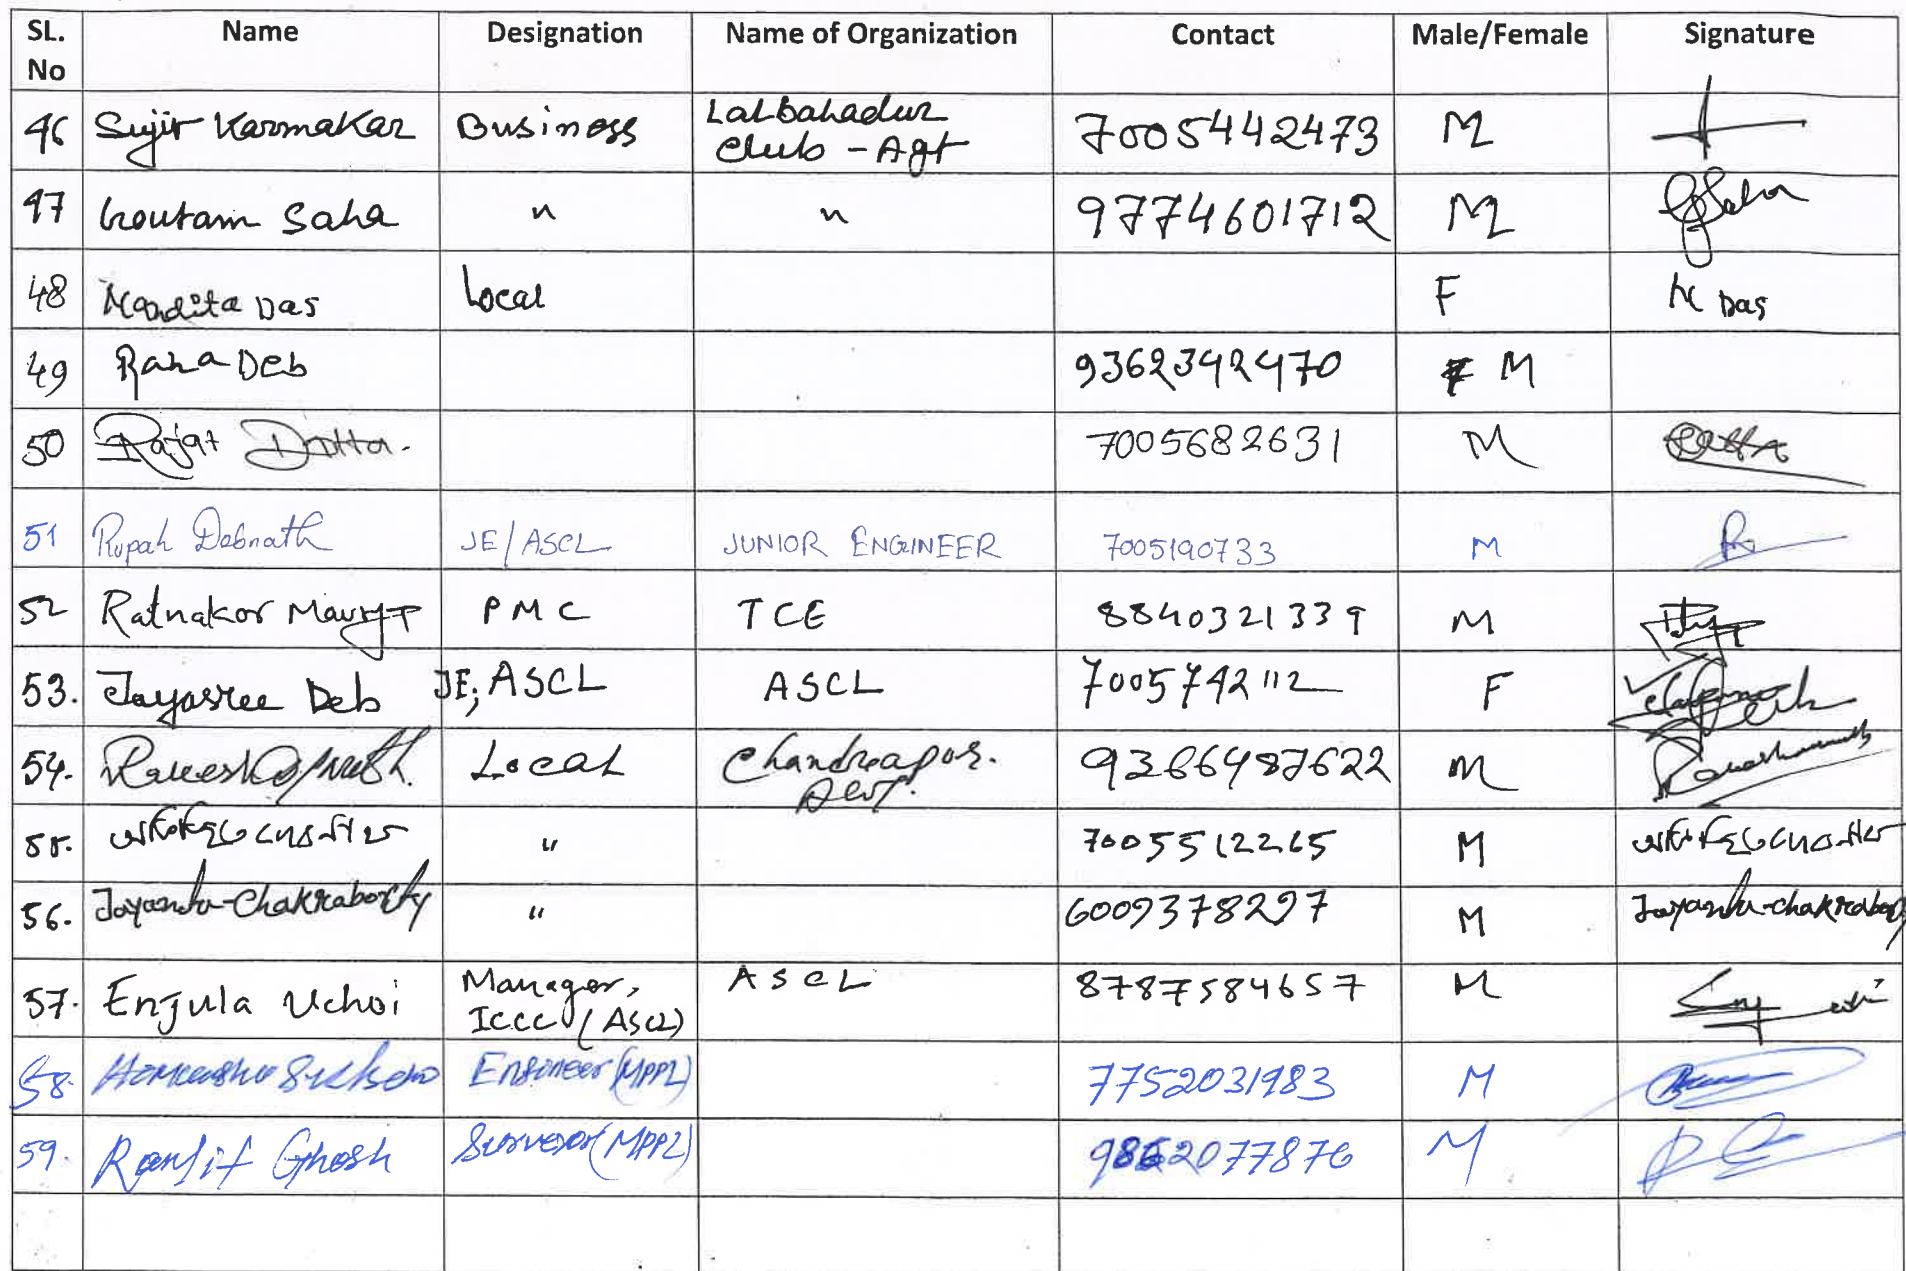 SL. No Name Designation Name of Organization Contact Male/Female Signature
46 Sujit Karmakar Business Lalbahadur Club - Agt 7005442473 M
47 Goutam Saha " " 9774601712 M GSaha
48 Nandita Das Local F N Das
49 Rana Deb 9362342470 M
50 Rajat Dutta. 7005682631 M
51 Rupak Debnath JE/ASCL JUNIOR ENGINEER 7005190733 M
52 Ratnakor Maurya PMC TCE 8840321339 M
53. Jayasree Deb JE, ASCL ASCL 7005742112 F
54. Local 9366487622 M
55. " 7005512265 M
56. Jayanta-Chakraborty " 6009378297 M Jayanta-chakrabor
57. Enjula Uchoi Manager, ICCC (ASCL) ASCL 8787584657 M
58. Engineer (MPPL) 7752031983 M
59. Ranjit Ghosh Surveyor (MPPL) 9862077876 M